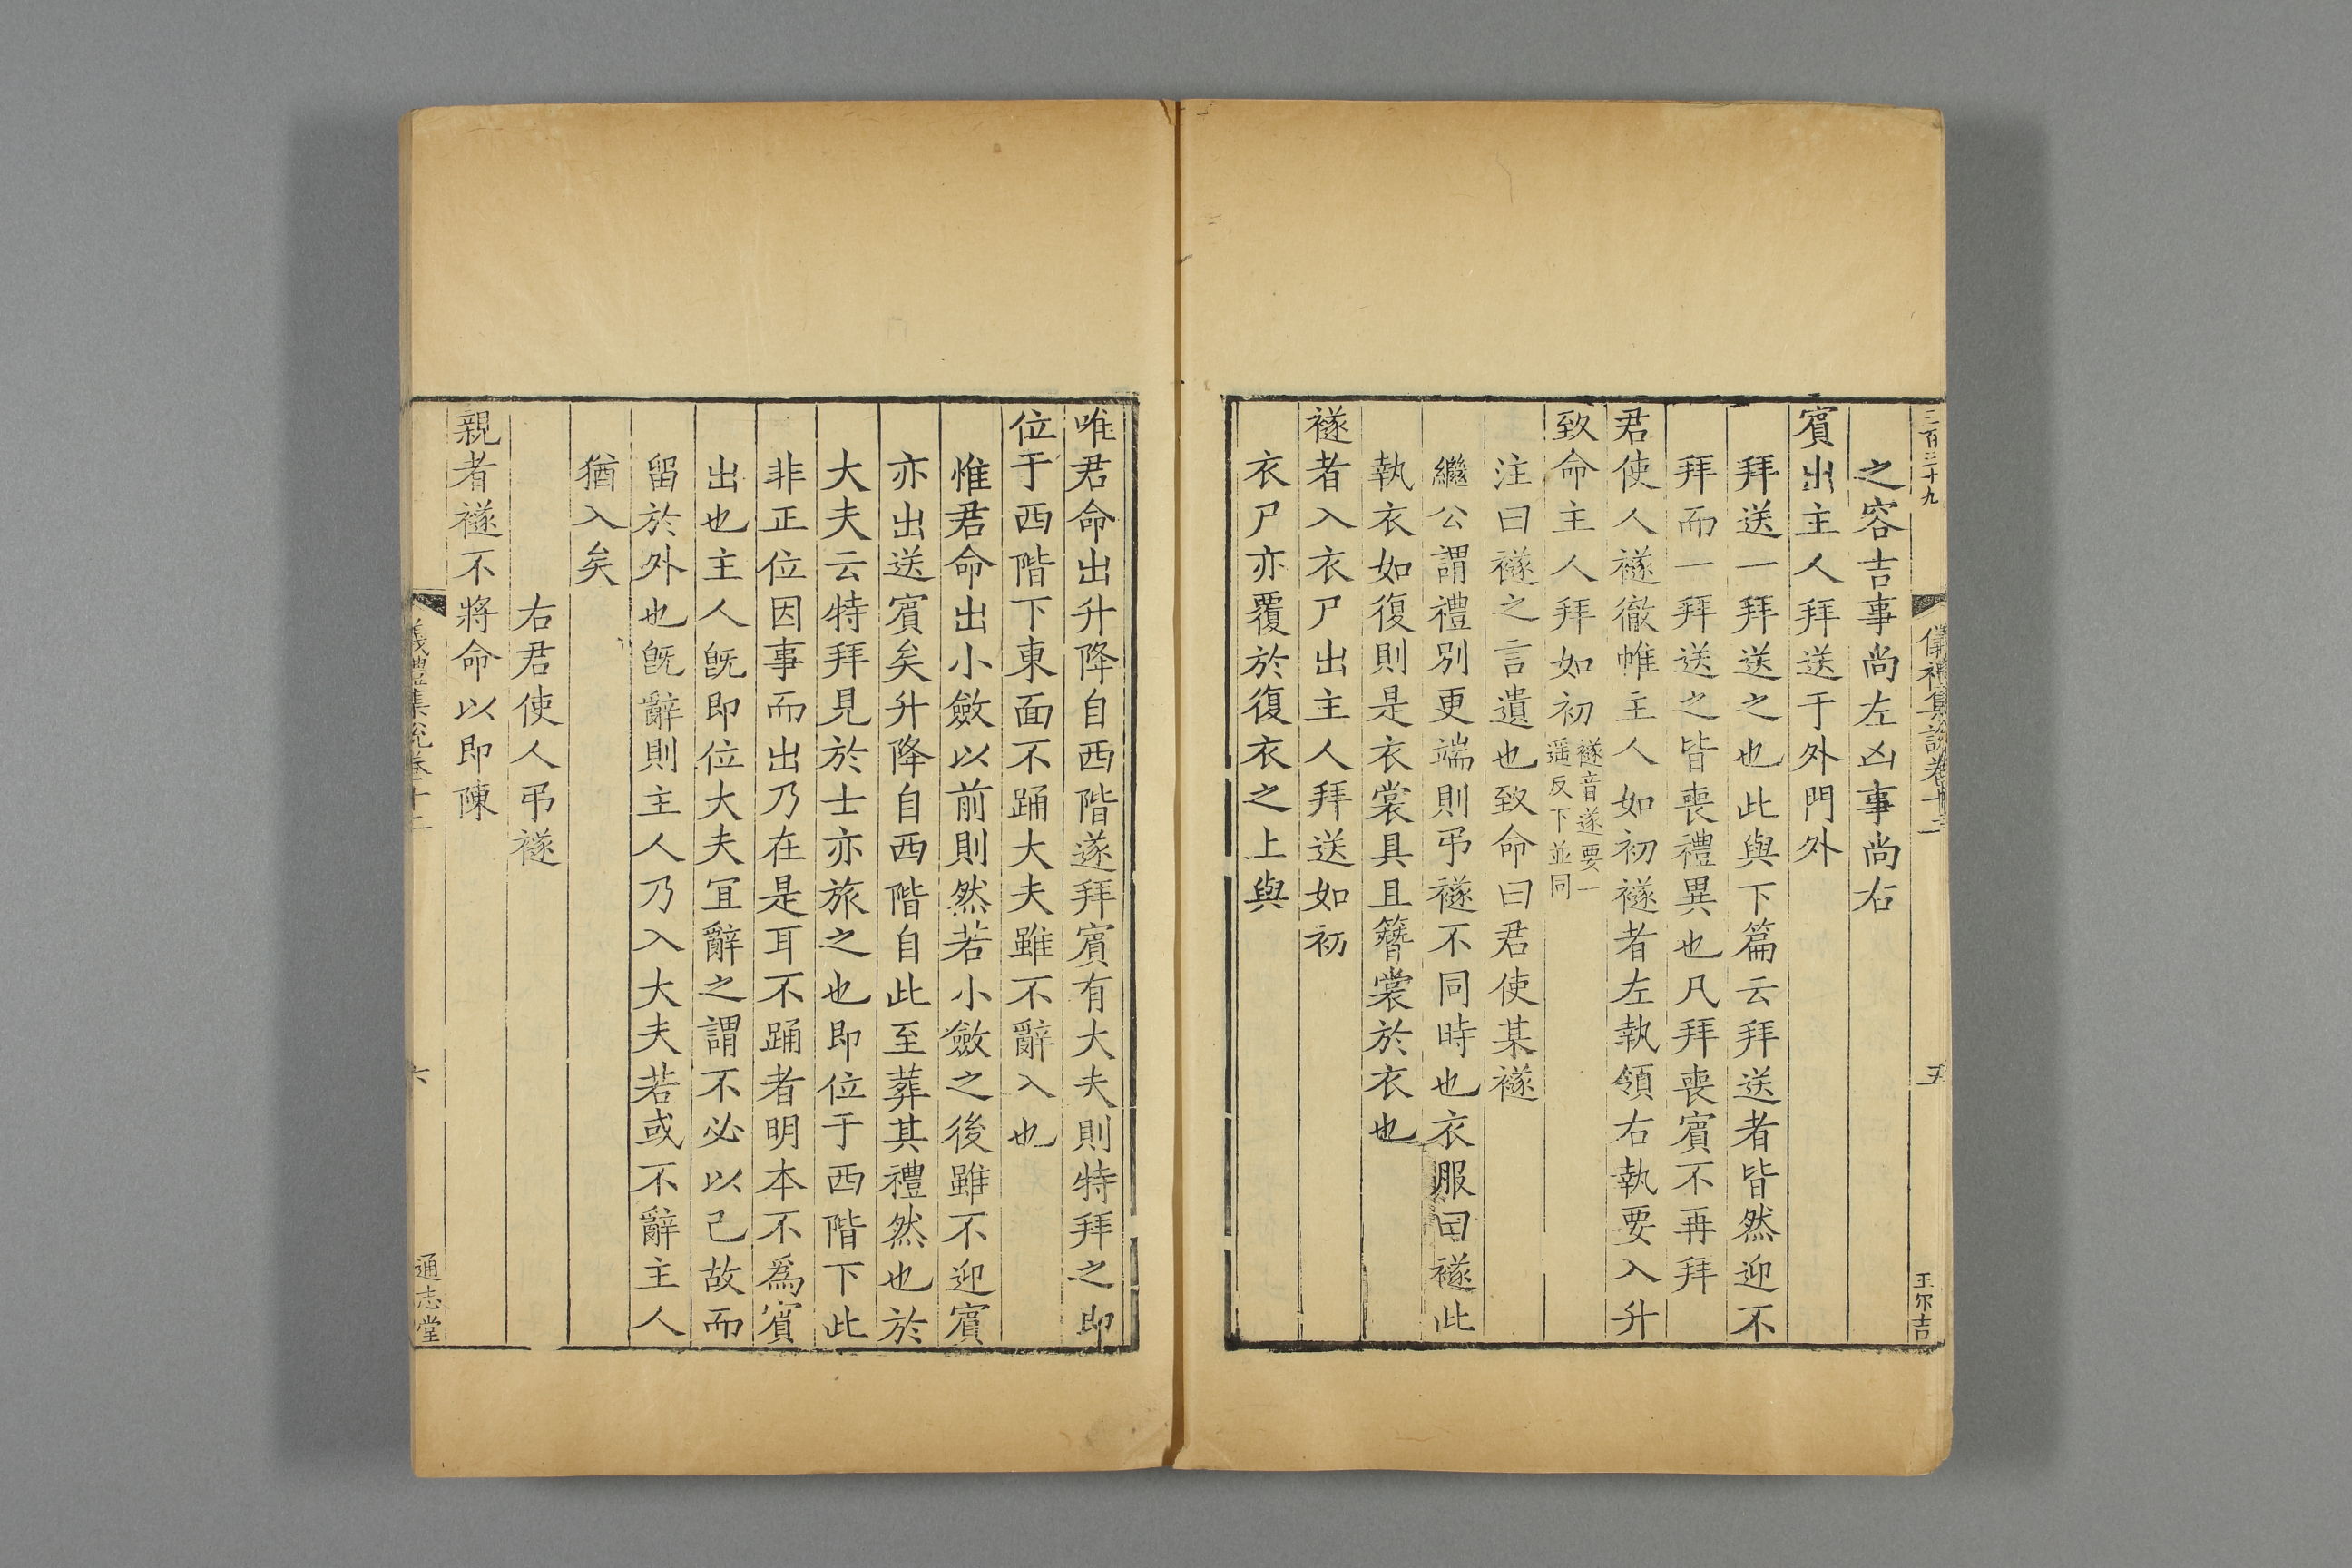 三百三十九
儀禮集説卷十二
五
王尔吉
之容吉事尚左凶事尚右
賓出主人拜送于外門外
拜送一拜送之也此與下篇云拜送者皆然迎不
拜而一拜送之皆喪禮異也凡拜喪賓不再拜
君使人襚徹帷主人如初襚者左執領右執要入升
致命主人拜如初
襚音遂要一
遥反下並同
注曰襚之言遺也致命曰君使某襚
繼公謂禮別更端則弔襚不同時也衣服曰襚此
執衣如復則是衣裳具且簪裳於衣也
襚者入衣尸出主人拜送如初
衣尸亦覆於復衣之上與
唯君命出升降自西階遂拜賓有大夫則特拜之即
位于西階下東面不踊大夫雖不辭入也
惟君命出小斂以前則然若小斂之後雖不迎賓
亦出送賓矣升降自西階自此至葬其禮然也於
大夫云特拜見於士亦旅之也即位于西階下此
非正位因事而出乃在是耳不踊者明本不爲賓
出也主人旣即位大夫宜辭之謂不必以己故而
留於外也旣辭則主人乃入大夫若或不辭主人
猶入矣
右君使人弔襚
親者襚不將命以即陳
儀禮集説卷十二
六
通志堂